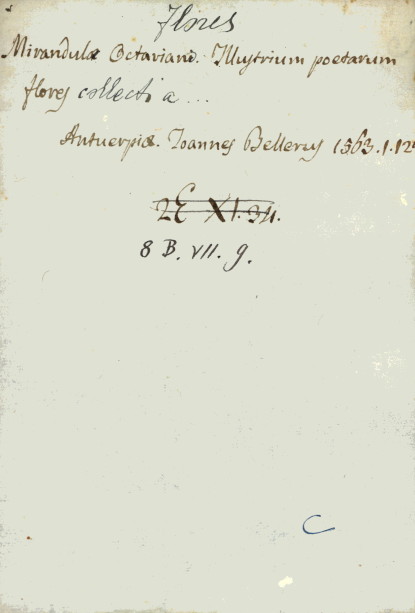 Flores
Mirandulæ Octaviano. Illustrium poetarum
flores collecti a ...
Antuerpiæ. Ioannes Bellerus 1563. 1. 12°
2E XI. 34.
8 B. VII. 9.
C